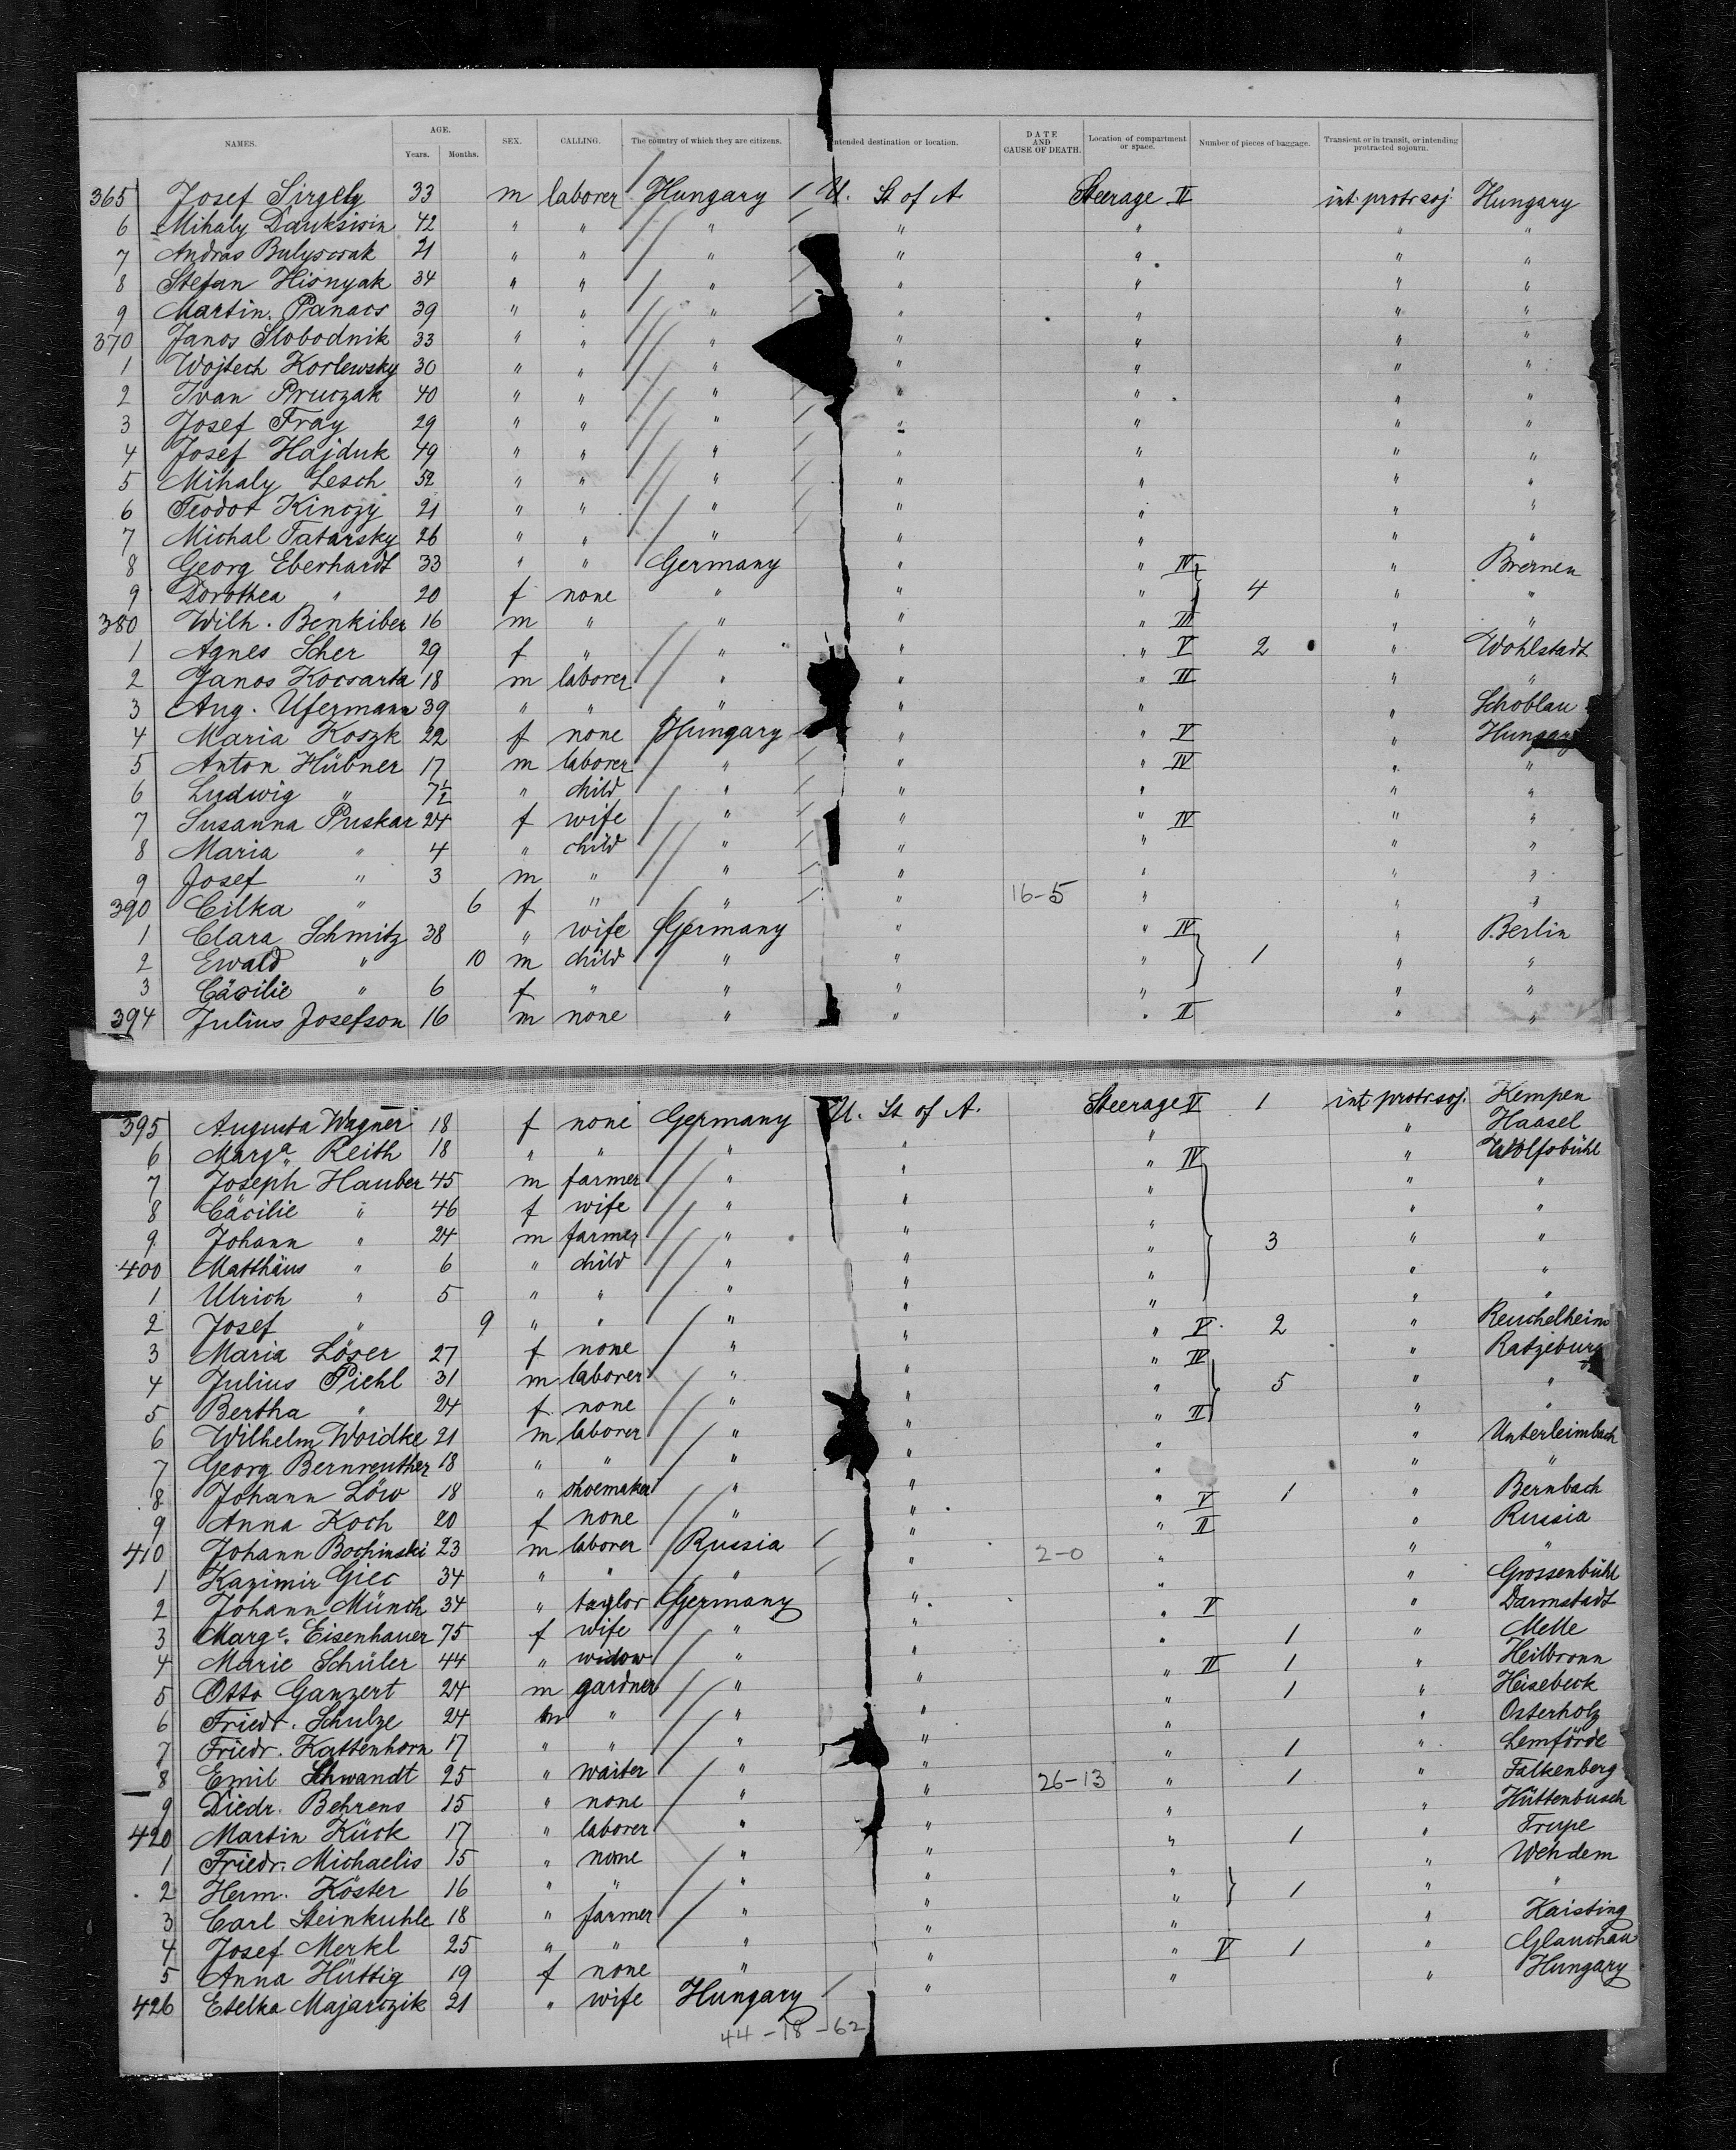 NAMES. AGE. Years. Months. SEX. CALLING. The country of which they are citizens. Intended destination or location. DATE AND CAUSE OF DEATH. Location of compartment or space. Number of pieces of baggage. Transient or in transit, or intending protracted sojourn.
365 Josef Sirgely 33 m laborer Hungary U. St of A Steerage II int. protr soj. Hungary
6 Mihaly Dauksisin 42 " " " " " " "
7 Andras Bulyscsak 21 " " " " " " "
8 Stefan Hisnyak 34 " " " " " " "
9 Martin. Panacs 39 " " " " " " "
370 Janos Slobodnik 33 " " " " " " "
1 Wojtech Korlewsky 30 " " " " " " "
2 Ivan Pruczak 40 " " " " " " "
3 Josef Fray 29 " " " " " " "
4 Josef Hajduk 49 " " " " " " "
5 Mihaly Lesch 52 " " " " " " "
6 Teodor Kinczy 21 " " " " " " "
7 Michal Tatarsky 26 " " " " " " "
8 Georg Eberhardt 33 " " Germany " " IV " Bremen
9 Dorothea " 20 f none " " " 4 " "
380 Wilh. Benkiber 16 m " " " " III " "
1 Agnes Scher 29 f " " " " V 2 " Wohlstadt
2 Janos Kocsarta 18 m laborer " " " II " "
3 Aug. Ufermann 39 " " " " " " Schoblau
4 Maria Koszk 22 f none Hungary " " V " Hungary
5 Anton Hübner 17 m laborer " " " IV " "
6 Ludwig " 7½ " child " " " " "
7 Susanna Puskar 24 f wife " " " IV " "
8 Maria " 4 " child " " " " "
9 Josef " 3 m " " " " " "
390 Cilka " 6 f " " " 16-5 " " "
1 Clara Schmitz 38 " wife Germany " " IV " Berlin
2 Ewald " 10 m child " " " 1 " "
3 Cäcilie " 6 f " " " " " "
394 Julius Josefson 16 m none " " " II " "
395 Augusta Wagner 18 f none Germany U. St of A. Steerage V 1 int protr soj. Kempen
6 Marga Reith 18 " " " " " " Haasel
7 Joseph Hauber 45 m farmer " " " IV " Wolfsbühl
8 Cäcilie " 46 f wife " " " " "
9 Johann " 24 m farmer " " " 3 " "
400 Matthäus " 6 " child " " " " "
1 Ulrich " 5 " " " " " " "
2 Josef " 9 " " " " " " "
3 Maria Löser 27 f none " " " V 2 " Reuchelheim
4 Julius Piehl 31 m laborer " " " IV 5 " Ratzeburg
5 Bertha " 24 f none " " " " "
6 Wilhelm Woidke 21 m laborer " " " II " "
7 Georg Bernreuther 18 " " " " " " Unterleimbach
8 Johann Löw 18 " shoemaker " " " " "
9 Anna Koch 20 f none " " " V 1 " Bernbach
410 Johann Bochinski 23 m laborer Russia " " II " Russia
1 Kazimir Giec 34 " " " " 2-0 " " "
2 Johann Münch 34 " taylor Germany " " " Grossenbühl
3 Marge. Eisenhauer 75 f wife " " " V " Darmstadt
4 Marie Schüler 44 " widow " " " 1 " Melle
5 Otto Ganzert 24 m gardner " " " II 1 " Heilbronn
6 Friedr. Schulze 24 m " " " " 1 " Heisebeck
7 Friedr. Kattenhorn 17 " " " " " " Osterholz
8 Emil Schwandt 25 " waiter " " " 1 " Lemförde
9 Diedr. Behrens 15 " none " " 26-13 " 1 " Falkenberg
420 Martin Kück 17 " laborer " " " " Hüttenbusch
1 Friedr. Michaelis 15 " none " " " 1 " Trupe
2 Herm. Köster 16 " " " " " " Wehdem
3 Carl Steinkuhle 18 " farmer " " " 1 " "
4 Josef Merkl 25 " " " " " " Haisting
5 Anna Hüttig 19 f none " " " V 1 " Glauchau
426 Etelka Majarczik 21 " wife Hungary " " " Hungary
44-18-62